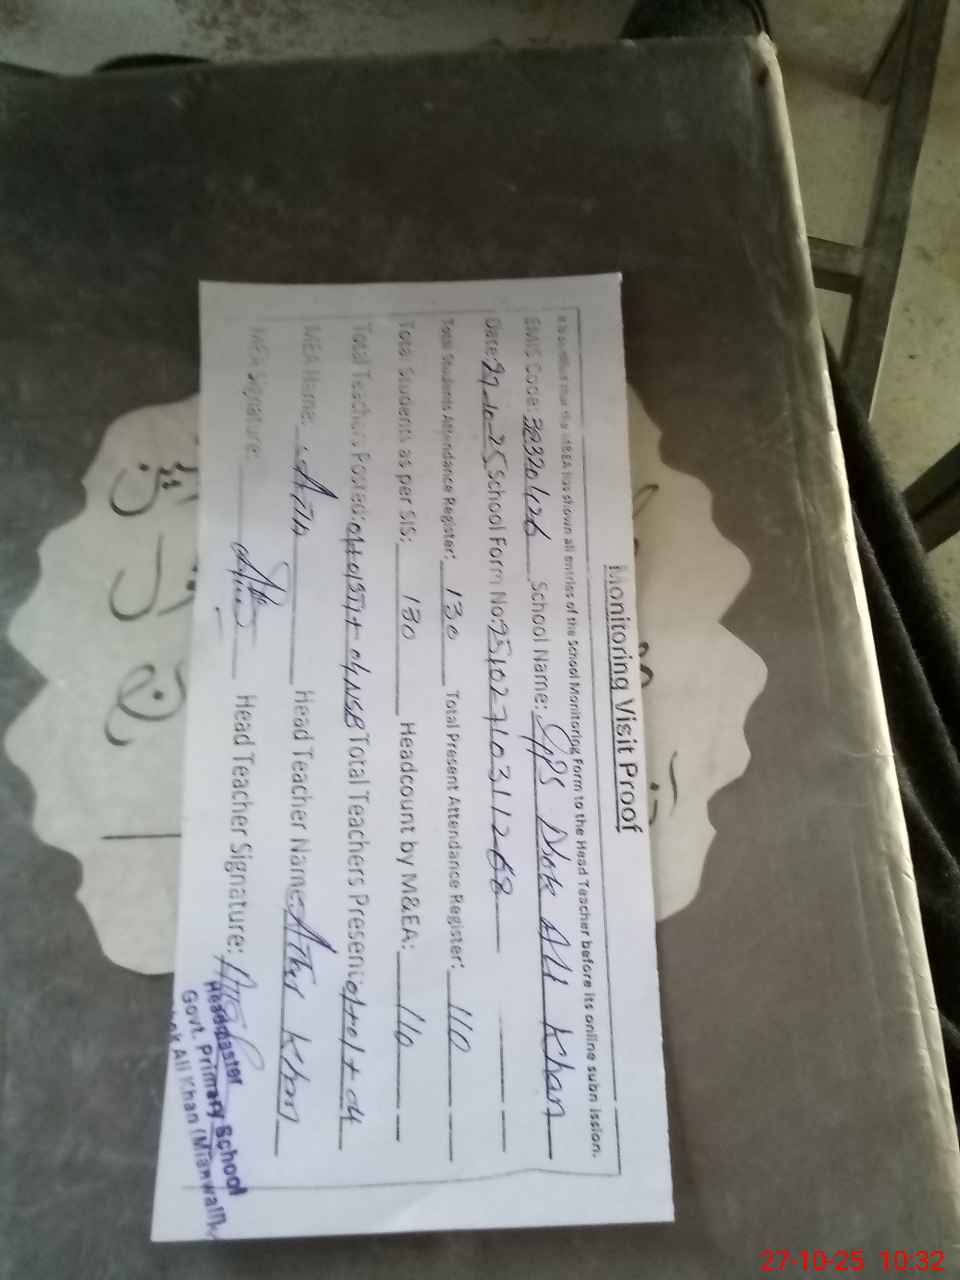 Monitoring Visit Proof
It is certified that the MEA has shown all entries of the School Monitoring Form to the Head Teacher before its online submission.
EMIS Code: School Name: GPS Dhok Ali Khan
Date: 27-10-25 School Form No: 25102710311268
Total Students Attendance Register: 130 Total Present Attendance Register: 110
Total Students as per SIS: 130 Headcount by M&EA: 110
Total Teachers Posted: Total Teachers Present: 01+01+04
MEA Name: Head Teacher Name: Khan
MEA Signature: Head Teacher Signature:
Headmaster
Govt. Primary School
Ali Khan (Mianwali)
27-10-25 10:32